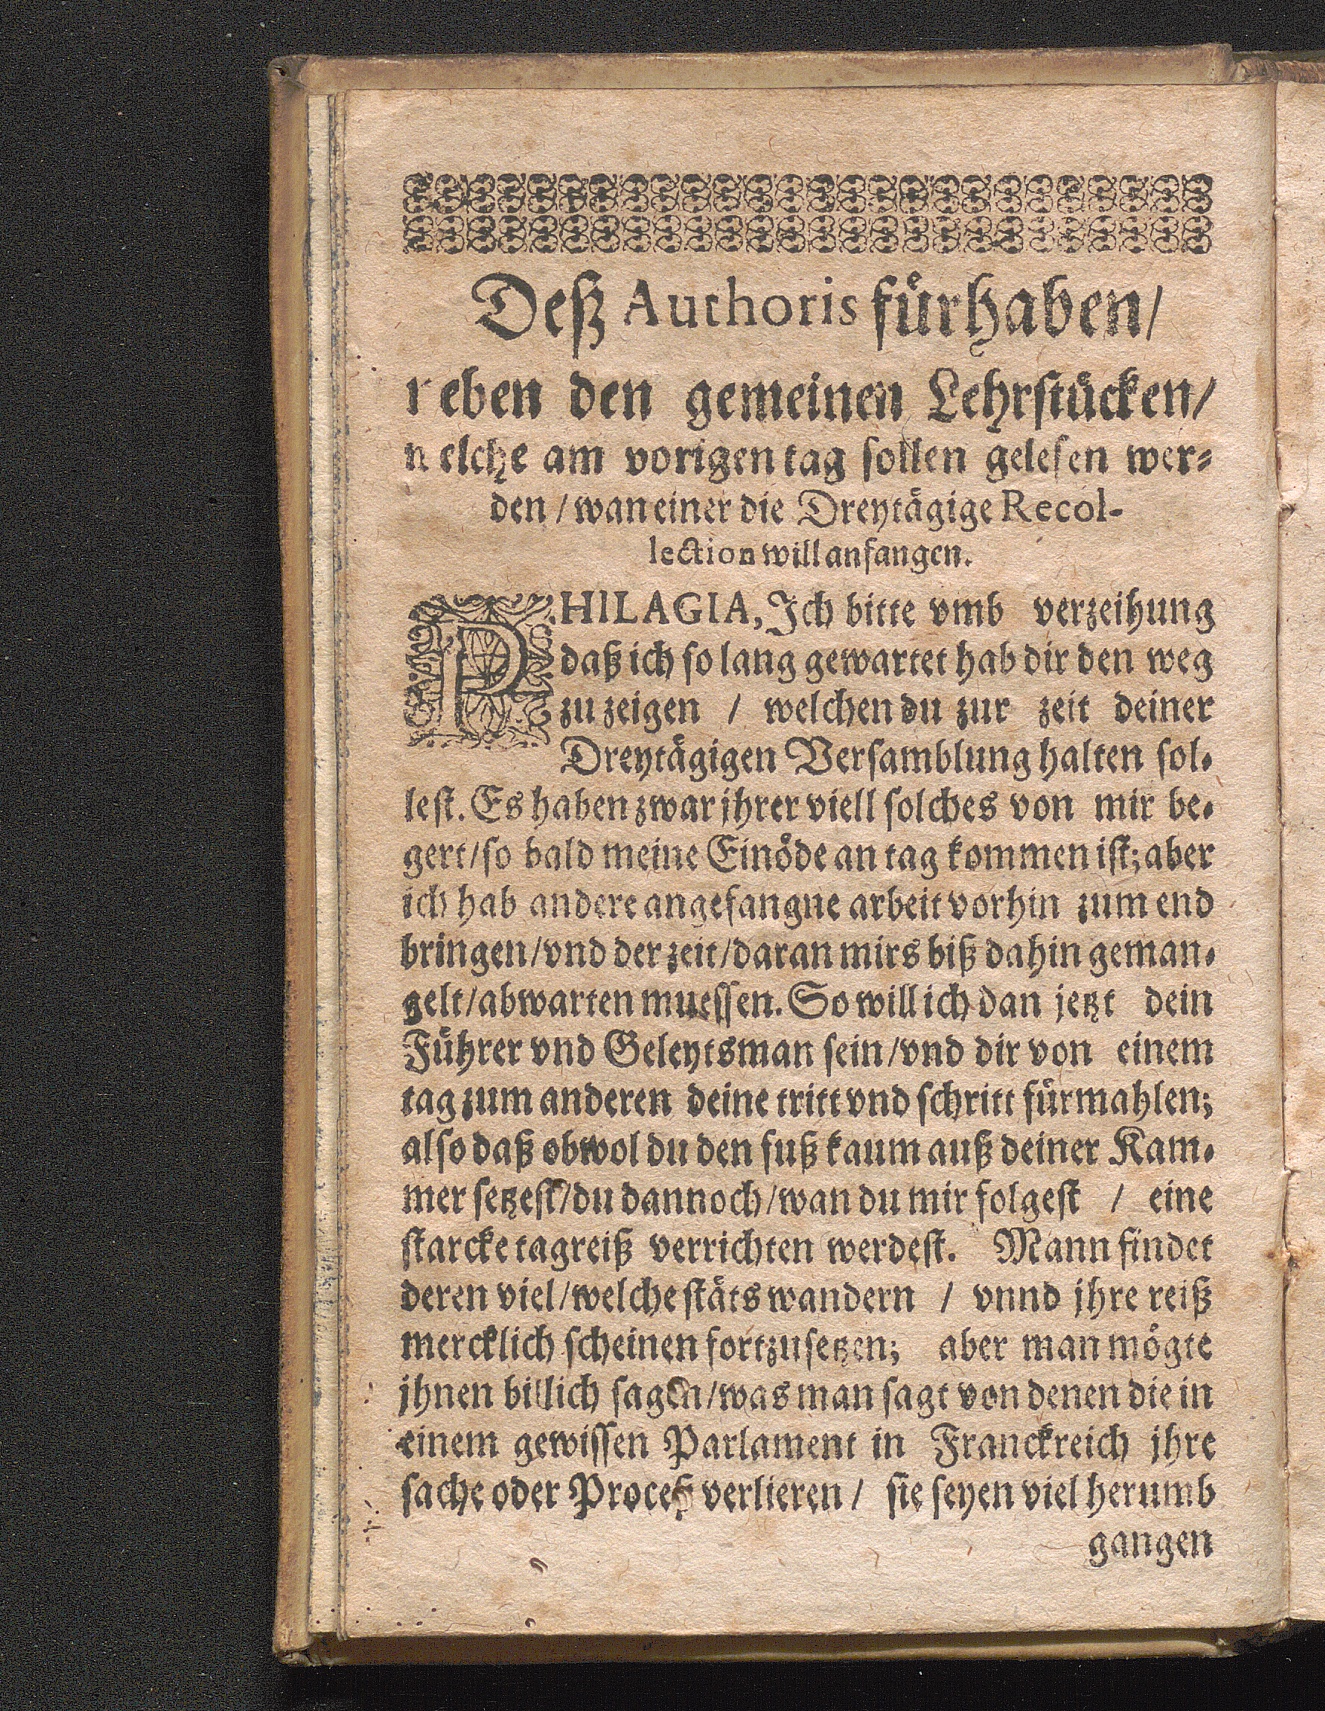 Deß Authoris fürhaben/
neben den gemeinen Lehrstücken/
welche am vorigen tag sollen gelesen wer-
den / wan einer die Dreytägige Recol-
lection will anfangen.
PHILAGIA, Ich bitte vmb verzeihung
daß ich so lang gewartet hab dir den weg
zu zeigen / welchen du zur zeit deiner
Dreytägigen Versamblung halten sol-
lest. Es haben zwar jhrer viell solches von mir be-
gert/so bald meine Einöde an tag kommen ist; aber
ich hab andere angefangne arbeit vorhin zum end
bringen/vnd der zeit/daran mirs biß dahin geman-
gelt/abwarten muessen. So will ich dan jetzt dein
Führer vnd Geleytsman sein/vnd dir von einem
tag zum anderen deine tritt vnd schritt fürmahlen;
also daß obwol du den fuß kaum auß deiner Kam-
mer setzest/du dannoch/wan du mir folgest / eine
starcke tagreiß verrichten werdest. Mann findet
deren viel/welche stäts wandern / vnnd jhre reiß
mercklich scheinen fortzusetzen; aber man mögte
jhnen billich sagen/was man sagt von denen die in
einem gewissen Parlament in Franckreich jhre
sache oder Proceß verlieren / sie seyen viel herumb
gangen